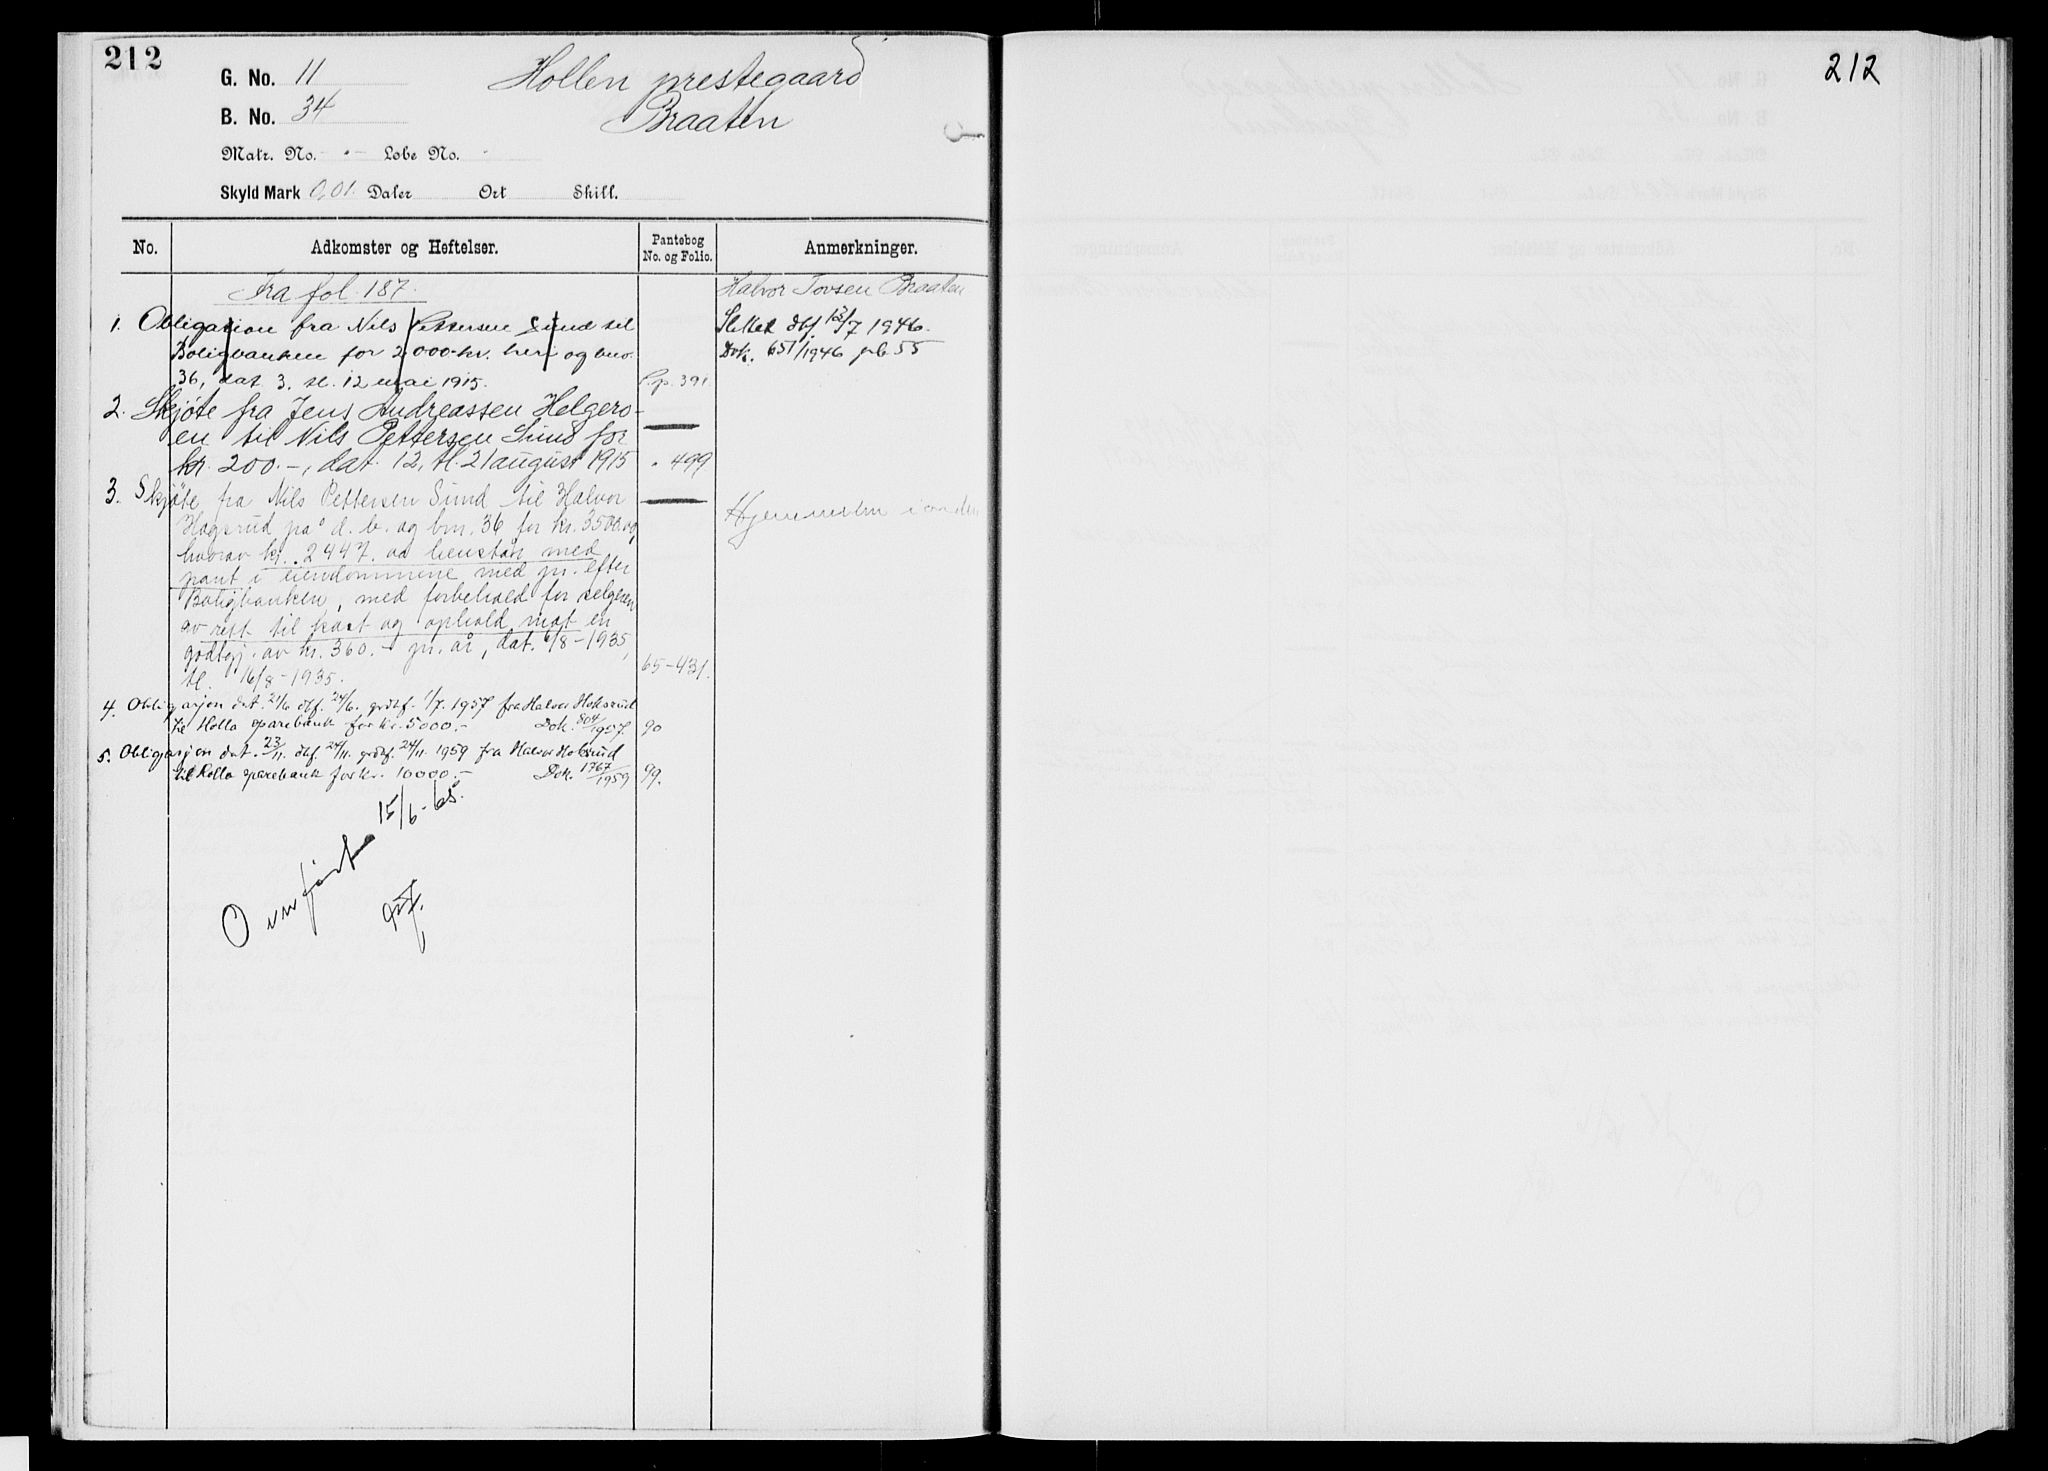 212
G. No. 11
Hollen prestegaard
B. No. 34
Braaten
Matr. No. - Løbe No. -
Skyld Mark 0,01. Daler Ort Skill.
No.
Adkomster og Heftelser.
Pantebog No. og Folio.
Anmerkninger.
Fra fol. 187.
Halvor Tovsen Braaten
1. Obligasion fra Nils Pettersen Sund til
Boligbanken for 2000 kr. heri og bno.
36, dat. 3. tl. 12 mai 1915. P.p. 391.
Slettet dbf 12/7 1946.
Dok. 651/1946 pb 55
2. Skjöte fra Jens Andreassen Helgero-
en til Nils Pettersen Sund for
kr. 200.-, dat. 12, tl. 21 august 1915 " 499
3. Skjöte fra Nils Pettersen Sund til Halvor
Hogsrud på d. b. og bnr. 36 for kr. 3500.00,
hvorav kr. 2447. henstår med
pant i eiendommene med pr. efter
Boligbanken, med forbehold for selgeren
av rett til kost og ophold mot en
godtgj. av kr. 360.- pr. år, dat. 6/8-1935,
tl. 16/8-1935. 65-431.
Hjemmelen i orden
4. Obligasjon dat. 21/6 dbf. 24/6. grdbf. 1/7. 1957 fra Halvor Hoksrud
til Holla sparebank for kr. 5000.- Dok. 804/1957. 90
5. Obligasjon dat. 23/11. dbf. 24/11. grdbf. 24/11. 1959 fra Halvor Hoksrud
til Holla sparebank for kr. 10000.- Dok. 1767/1959 99.
Overført 15/6-65.
212